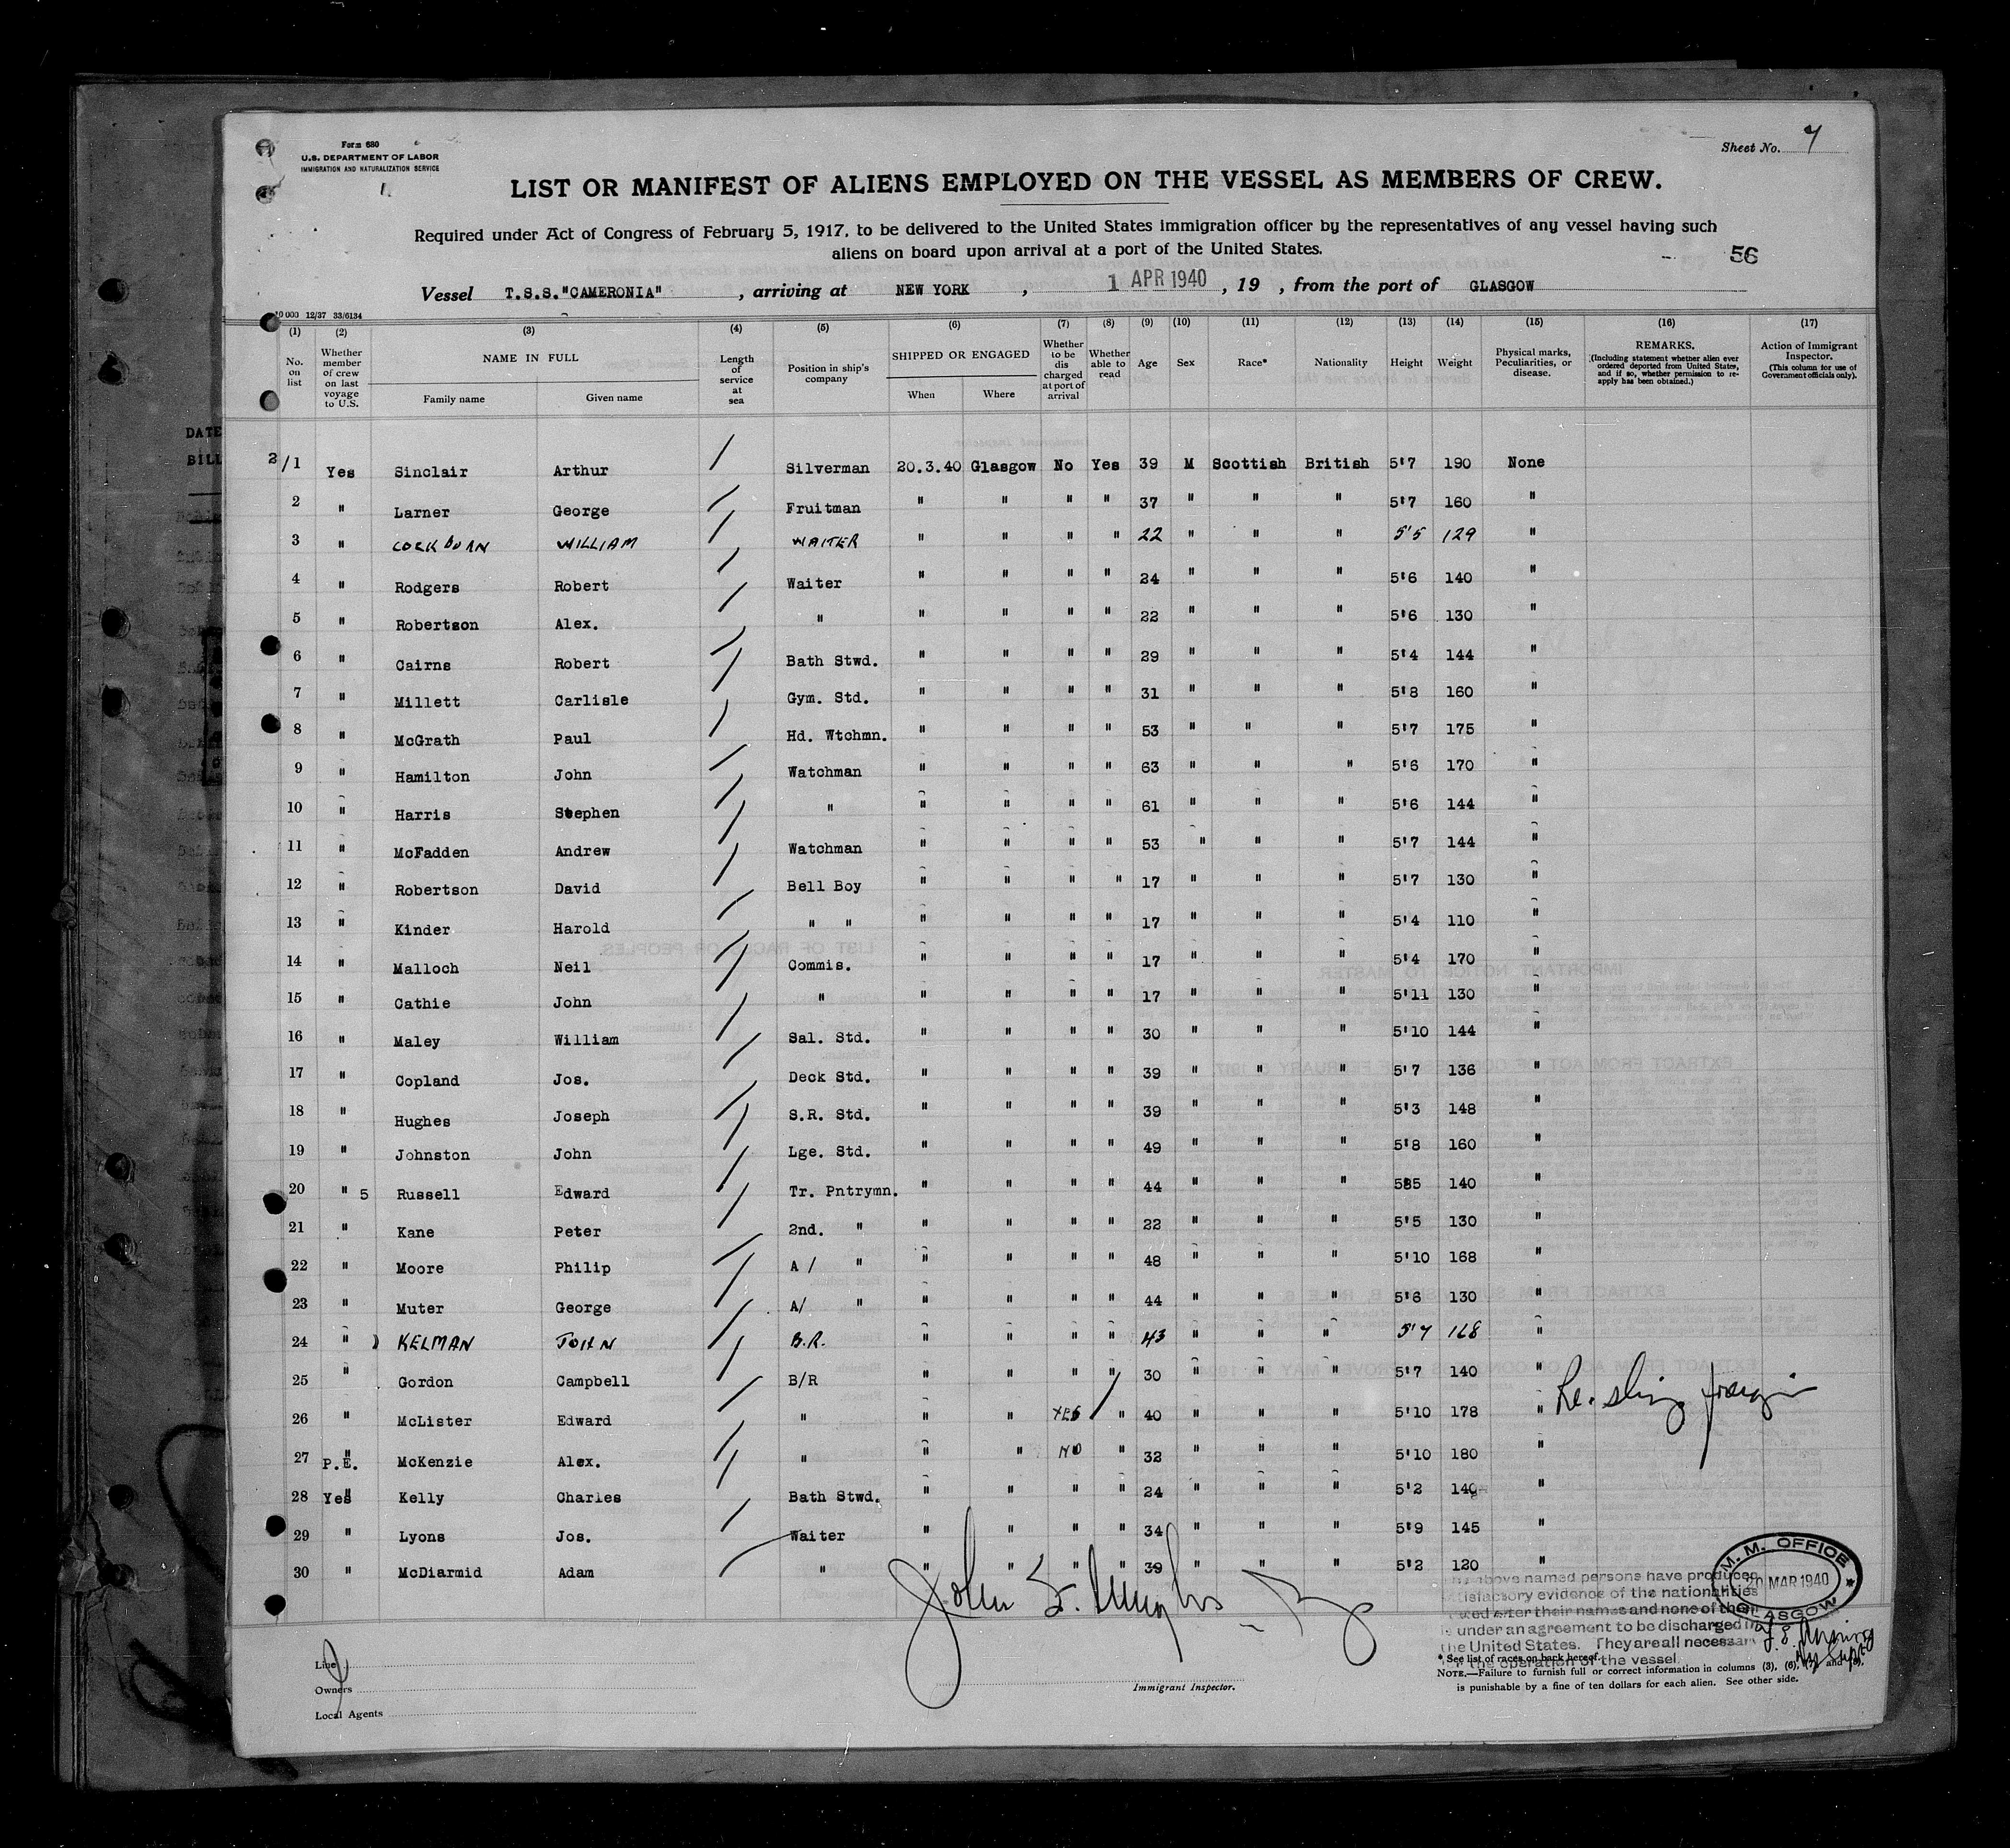 Form 680
U.S. DEPARTMENT OF LABOR
IMMIGRATION AND NATURALIZATION SERVICE
1.
Sheet No. 7
LIST OR MANIFEST OF ALIENS EMPLOYED ON THE VESSEL AS MEMBERS OF CREW.
Required under Act of Congress of February 5, 1917, to be delivered to the United States immigration officer by the representatives of any vessel having such
aliens on board upon arrival at a port of the United States.
56
Vessel T.S.S."CAMERONIA" , arriving at NEW YORK , 1 APR 1940 , 19 , from the port of GLASGOW
10 000 12/37 33/6134
(1) (2) (3) (4) (5) (6) (7) (8) (9) (10) (11) (12) (13) (14) (15) (16) (17)
No. on list Whether member of crew on last voyage to U.S. NAME IN FULL Family name Given name Length of service at sea Position in ship's company SHIPPED OR ENGAGED When Where Whether to be dis charged at port of arrival Whether able to read Age Sex Race* Nationality Height Weight Physical marks, Peculiarities, or disease. REMARKS. (Including statement whether alien ever ordered deported from United States, and if so, whether permission to re-apply has been obtained.) Action of Immigrant Inspector. (This column for use of Government officials only).
2/1 Yes Sinclair Arthur / Silverman 20.3.40 Glasgow No Yes 39 M Scottish British 5'7 190 None
2 " Larner George / Fruitman " " " " 37 " " " 5'7 160 "
3 " COCKBURN WILLIAM / WAITER " " " " 22 " " " 5'5 129 "
4 " Rodgers Robert / Waiter " " " " 24 " " " 5'6 140 "
5 " Robertson Alex. / " " " " " 22 " " " 5'6 130 "
6 " Cairns Robert / Bath Stwd. " " " " 29 " " " 5'4 144 "
7 " Millett Carlisle / Gym. Std. " " " " 31 " " " 5'8 160 "
8 " McGrath Paul / Hd. Wtchmn. " " " " 53 " " " 5'7 175 "
9 " Hamilton John / Watchman " " " " 63 " " " 5'6 170 "
10 " Harris Stephen / " " " " " 61 " " " 5'6 144 "
11 " McFadden Andrew / Watchman " " " " 53 " " " 5'7 144 "
12 " Robertson David / Bell Boy " " " " 17 " " " 5'7 130 "
13 " Kinder Harold / " " " " " " 17 " " " 5'4 110 "
14 " Malloch Neil / Commis. " " " " 17 " " " 5'4 170 "
15 " Cathie John / " " " " " 17 " " " 5'11 130 "
16 " Maley William / Sal. Std. " " " " 30 " " " 5'10 144 "
17 " Copland Jos. / Deck Std. " " " " 39 " " " 5'7 136 "
18 " Hughes Joseph / S.R. Std. " " " " 39 " " " 5'3 148 "
19 " Johnston John / Lge. Std. " " " " 49 " " " 5'8 160 "
20 " 5 Russell Edward / Tr. Pntrymn. " " " " 44 " " " 585 140 "
21 " Kane Peter / 2nd. " " " " " 22 " " " 5'5 130 "
22 " Moore Philip / A / " " " " " 48 " " " 5'10 168 "
23 " Muter George / A/ " " " " " 44 " " " 5'6 130 "
24 " ) KELMAN JOHN / B.R. " " " " 43 " " " 5'7 168 "
25 " Gordon Campbell / B/R " " " " 30 " " " 5'7 140 "
26 " McLister Edward / " " " YES / " 40 " " " 5'10 178 "
27 P.E. McKenzie Alex. / " " " NO " 32 " " " 5'10 180 "
28 Yes Kelly Charles / Bath Stwd. " " " " 24 " " " 5'2 140 "
29 " Lyons Jos. / Waiter " " " " 34 " " " 5'9 145 "
30 " McDiarmid Adam / " " " " " 39 " " " 5'2 120 "
M.M. OFFICE
20 MAR 1940
GLASGOW
above named persons have produced
satisfactory evidence of the nationalities
after their names and none of them
is under an agreement to be discharged in
the United States. They are all necessary
for the operation of the vessel.
Line
Owners
Local Agents
Immigrant Inspector.
* See list of races on back hereof.
NOTE.—Failure to furnish full or correct information in columns (3), (6), (7) and
is punishable by a fine of ten dollars for each alien. See other side.
DATE
BILL